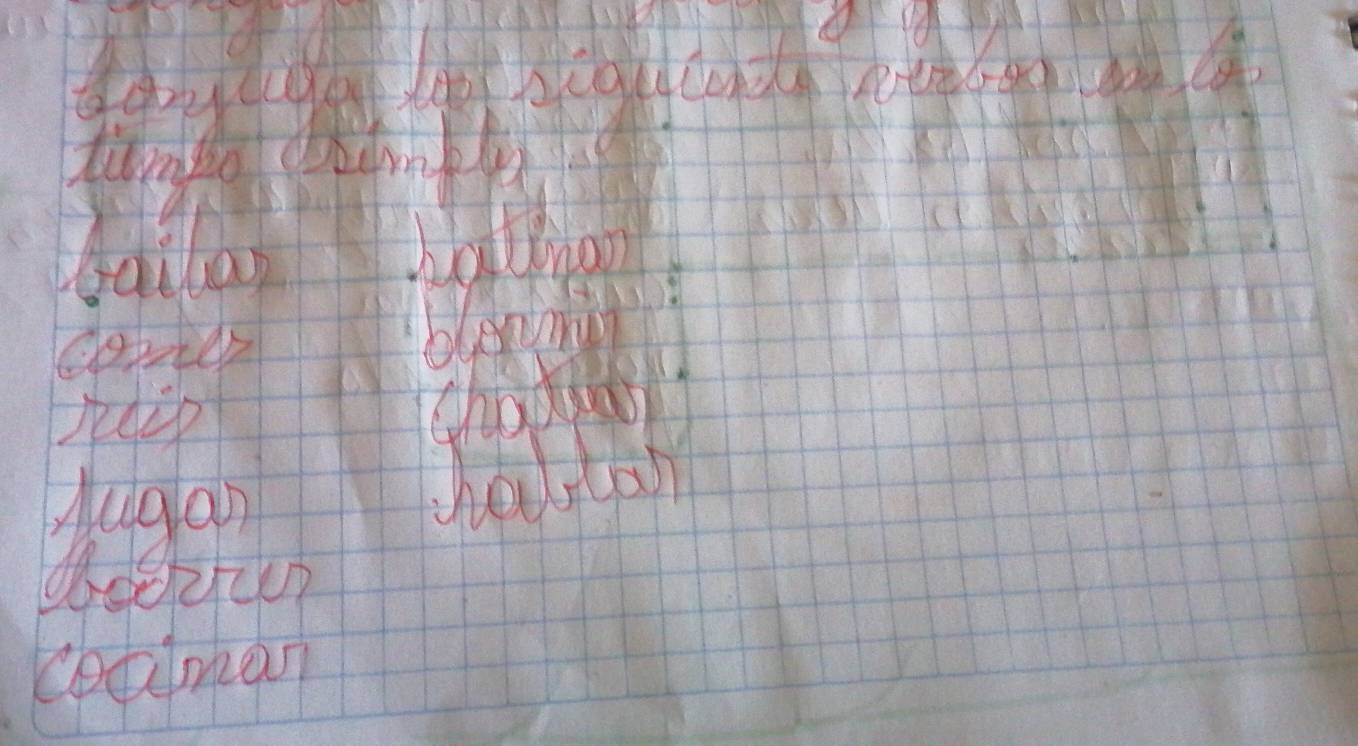 Conjuga los siguiente verbos en los
tiempo simples
bailar patinar
comer dormir
reir chatear
jugar hablar
correr
cocinar